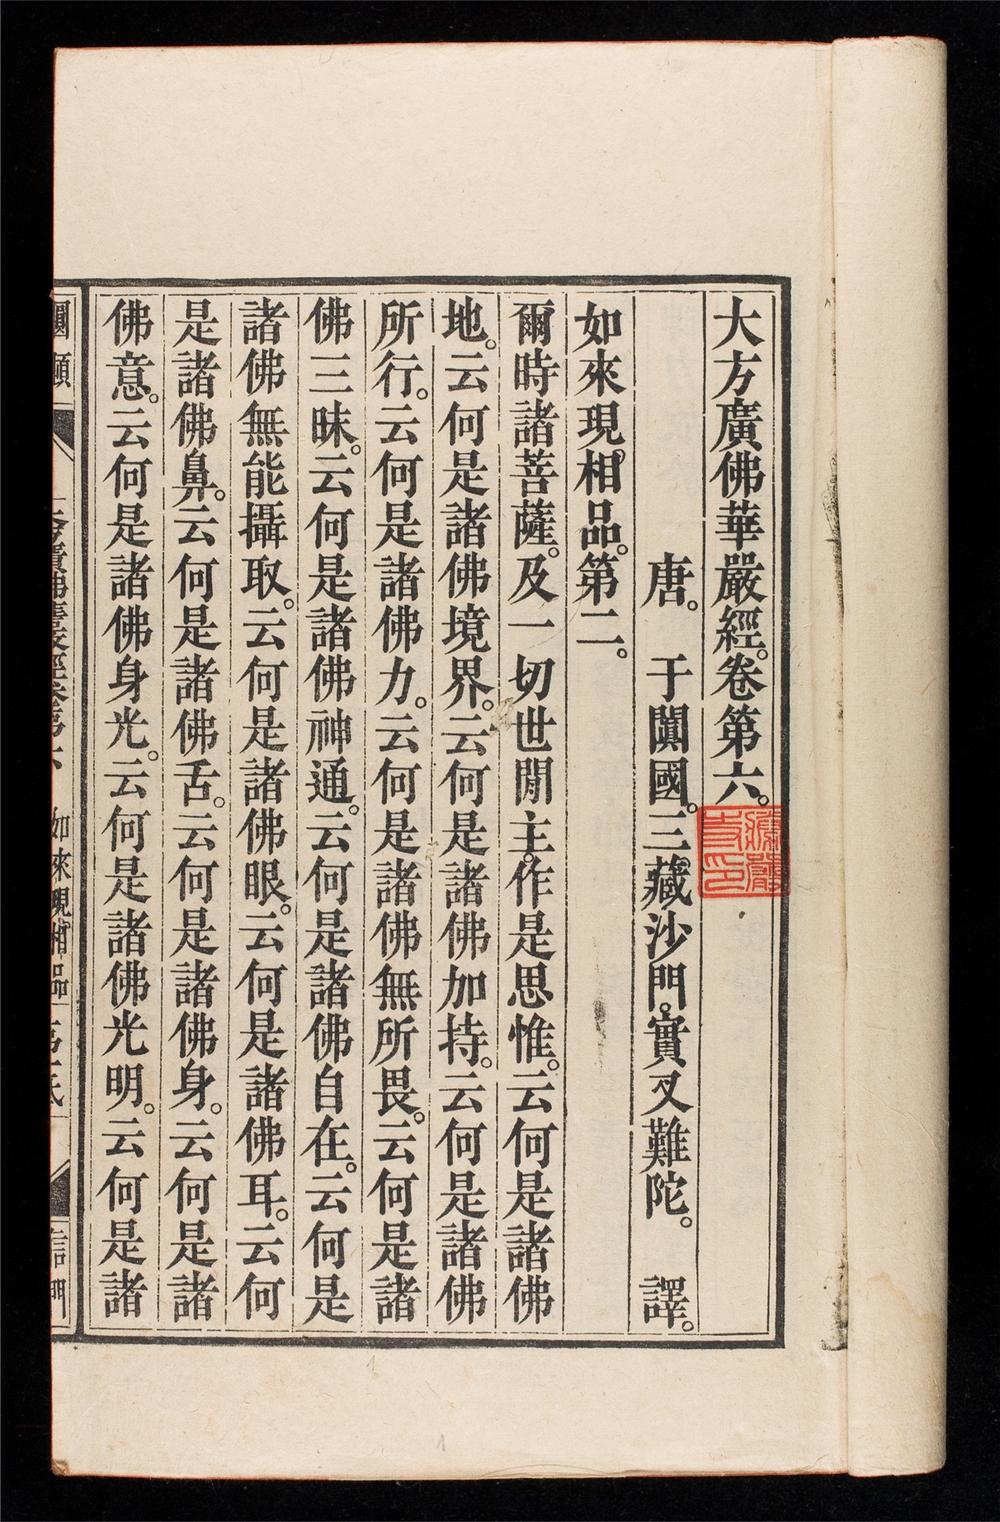 大方廣佛華嚴經。卷第六。
唐。 于闐國。三藏沙門。實叉難陀。 譯。
如來現。相品。第二。
爾時諸菩薩。及一切世閒主。作是思惟。云何是諸佛
地。云何是諸佛境界。云何是諸佛加持。云何是諸佛
所行。云何是諸佛力。云何是諸佛無所畏。云何是諸
佛三昧。云何是諸佛神通。云何是諸佛自在。云何是
諸佛無能攝取。云何是諸佛眼。云何是諸佛耳。云何
是諸佛鼻。云何是諸佛舌。云何是諸佛身。云何是諸
佛意。云何是諸佛身光。云何是諸佛光明。云何是諸
如來現相品